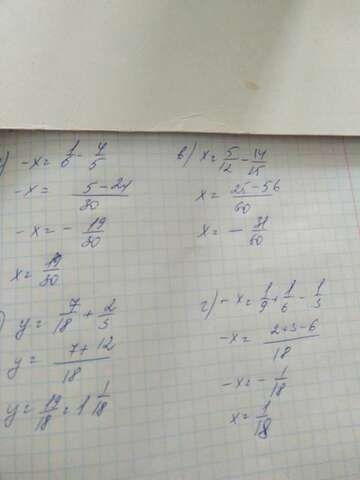 ) -x = 1/6 - 4/5
-x = 5-24/30
-x = - 19/30
x = 19/30
) y = 7/18 + 2/3
y = 7+12/18
y = 19/18 = 1 1/18
в) x = 5/12 - 14/15
x = 25-56/60
x = - 31/60
г) - x = 1/9 + 1/6 - 1/3
-x = 2+3-6/18
-x = - 1/18
x = 1/18